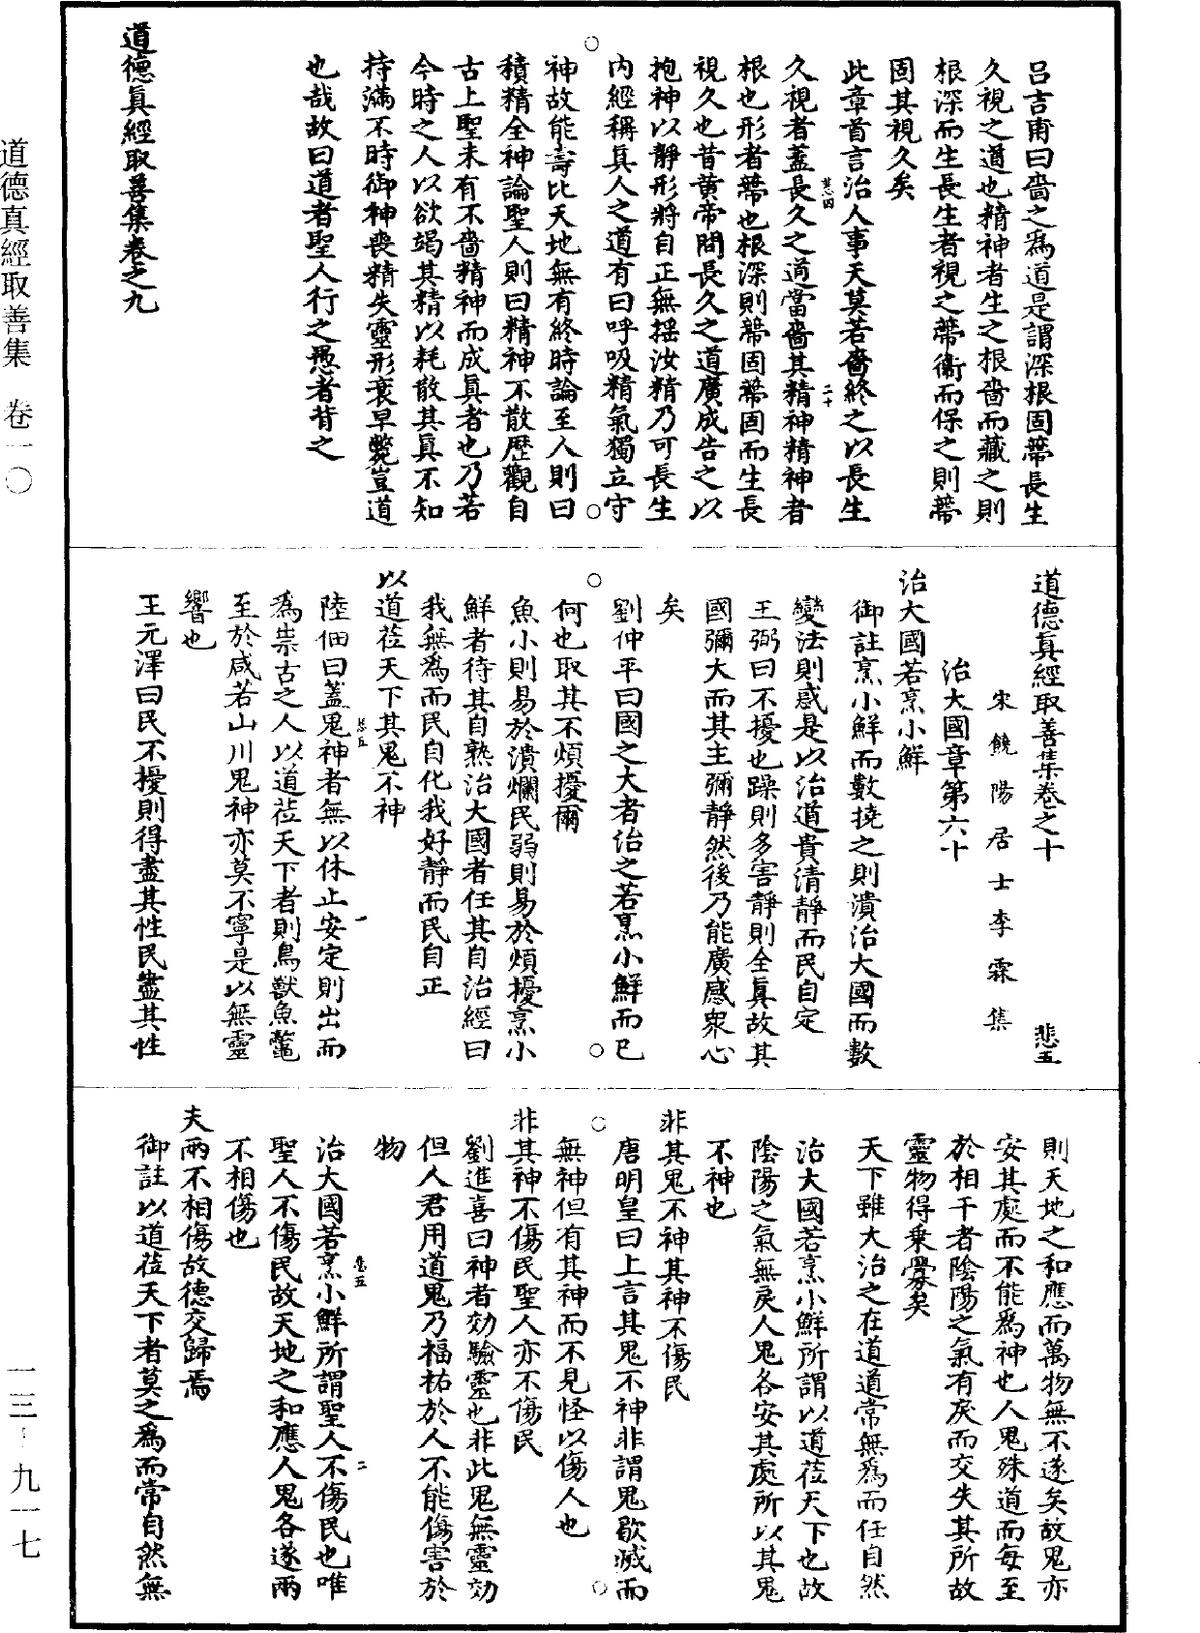 呂吉甫曰嗇之爲道是謂深根固蔕長生
久視之道也精神者生之根嗇而藏之則
根深而生長生者視之蔕衞而保之則蔕
固其視久矣
此章首言治人事天莫若嗇終之以長生
久視者蓋長久之道當嗇其精神精神者
根也形者蔕也根深則蔕固蔕固而生長
視久也昔黄帝問長久之道廣成告之以
抱神以靜形將自正無揺汝精乃可長生
内經稱眞人之道有曰呼吸精氣獨立守
神故能壽比天地無有終時論至人則曰
積精全神論聖人則曰精神不散歷觀自
古上聖未有不嗇精神而成眞者也乃若
今時之人以欲竭其精以耗散其眞不知
持滿不時御神喪精失靈形衰早斃豈道
也哉故曰道者聖人行之愚者背之
道德眞經取善集卷之九
道德眞經取善集卷之十 悲五
宋饒陽居士李霖集
治大國章第六十
治大國若烹小鮮
御註烹小鮮而數撓之則潰治大國而數
變法則惑是以治道貴清靜而民自定
王弼曰不擾也躁則多害靜則全眞故其
國彌大而其主彌靜然後乃能廣感衆心
矣
劉仲平曰國之大者治之若烹小鮮而已
何也取其不煩擾爾
魚小則易於潰爛民弱則易於煩擾烹小
鮮者待其自熟治大國者任其自治經曰
我無爲而民自化我好靜而民自正
以道莅天下其鬼不神
陸佃曰蓋鬼神者無以休止安定則出而
爲祟古之人以道莅天下者則鳥獸魚鼈
至於咸若山川鬼神亦莫不寧是以無靈
響也
王元澤曰民不擾則得盡其性民盡其性
則天地之和應而萬物無不遂矣故鬼亦
安其處而不能爲神也人鬼殊道而每至
於相干者陰陽之氣有戾而交失其所故
靈物得乗釁矣
天下雖大治之在道道常無爲而任自然
治大國若烹小鮮所謂以道莅天下也故
陰陽之氣無戾人鬼各安其處所以其鬼
不神也
非其鬼不神其神不傷民
唐明皇曰上言其鬼不神非謂鬼歇滅而
無神但有其神而不見怪以傷人也
非其神不傷民聖人亦不傷民
劉進喜曰神者効驗靈也非此鬼無靈効
但人君用道鬼乃福祐於人不能傷害於
物
治大國若烹小鮮所謂聖人不傷民也唯
聖人不傷民故天地之和應人鬼各遂兩
不相傷也
夫兩不相傷故德交歸焉
御註以道莅天下者莫之爲而常自然無
道德真經取善集 卷一〇
一三–九一七